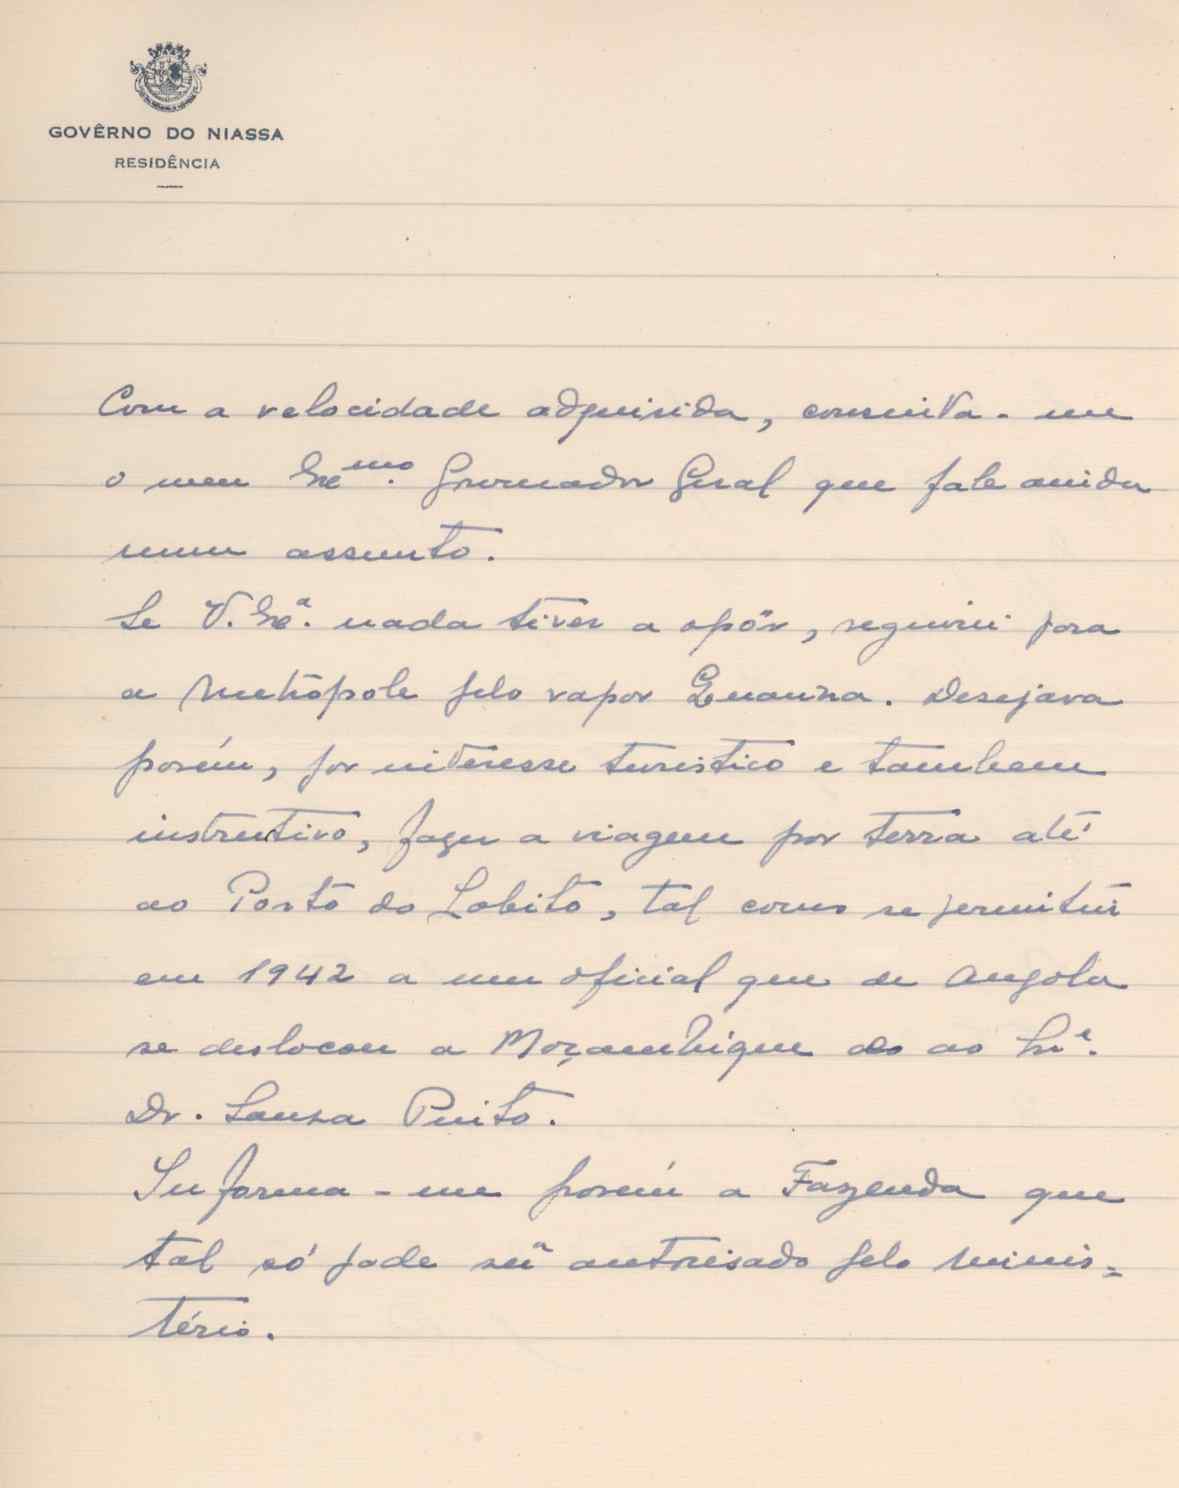 GOVÊRNO DO NIASSA
RESIDÊNCIA
Com a velocidade adquirida, consinta-me
o meu Exᵐᵒ. Governador Geral que fale ainda
num assunto.
Se V. Exª. nada tiver a opôr, seguirei para
a Metrópole pelo vapor Quanza. Desejava
porém, por interesse turistico e tambem
instrutivo, fazer a viagem por terra até
ao Porto do Lobito, tal como se permitiu
em 1942 a um oficial que de Angola
se deslocou a Moçambique e ao Snr.
Dr. Sousa Pinto.
Informa-me porém a Fazenda que
tal só pode ser autorisado pelo Minis=
tério.